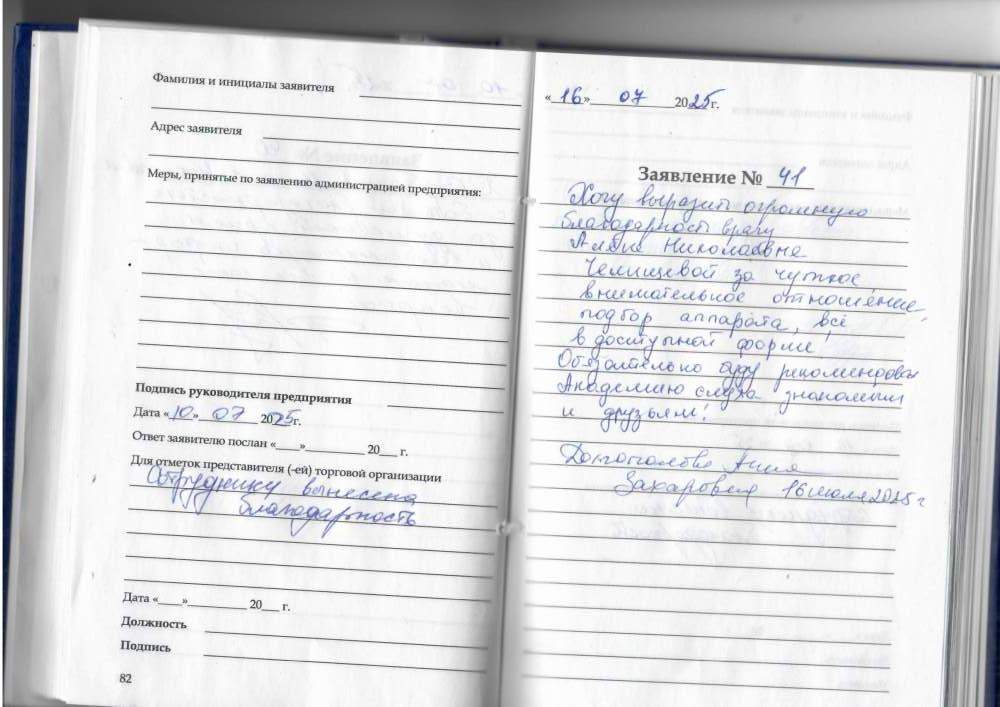 Фамилия и инициалы заявителя
Адрес заявителя
Меры, принятые по заявлению администрацией предприятия:
Подпись руководителя предприятия
Дата «10» 07 2025г.
Ответ заявителю послан «___»__________ 20___ г.
Для отметок представителя (-ей) торговой организации
Сотруднику вынесена
благодарность
Дата «____»__________ 20___ г.
Должность
Подпись
82
«16» 07 2025г.
Заявление № 41
Хочу выразить огромную
благодарность врачу
Николаевне
Челищевой за чуткое
внимательное отношение,
подбор аппарата, всё
в доступной форме,
Обязательно буду рекомендовать
Академию слуха знакомым
и друзьям!
Анна
Захаровна 16 июля 2025 г